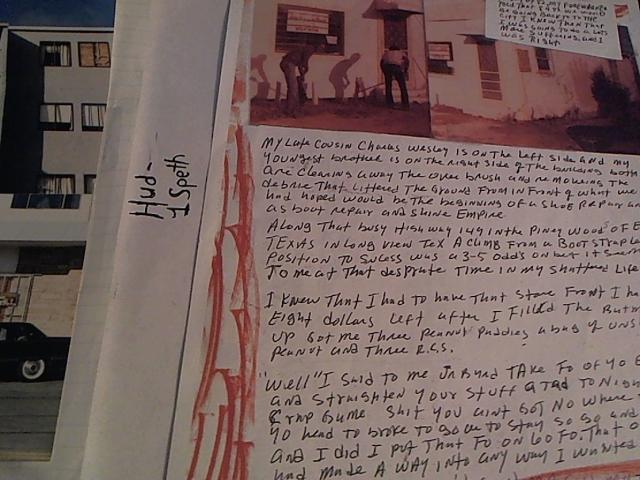 Hud-
1 Speth
City I Know That That
I was going to do a lots
More suffering, and I
was Right
My Late Cousin Charles Wesley is on The Left side and my
Youngest brother is on The Right side of The building both
are clearing away The over brush and removing The
debrie That Littered The Ground From in Front of what we
had hoped would be The beginning of a shoe Repair an
as boot repair and shine Empire.
Along That busy Highway 149 in the Piney Wood's of E
TEXAS in Long View Tex A Climb From a Boot Strap
Position To Sucess was a 3-5 odds on bet it
To me at That desprate Time in my Shattered Life
I Knew That I had to have That Store Front I ha
Eight dollars Left after I Filled The
up Got me Three Peanut Paddies a bag of uns
Peanut and Three R.C.s.
"Well" I said to me TAke Fo of Yo
and Straighten Your Stuff a Tad To Nigh
Crap Game Shit You aint Got No where
Yo head to broke to go to Stay so go and
and I did I put That Fo on 60 Fo. That
and Made A way into any way I wanted